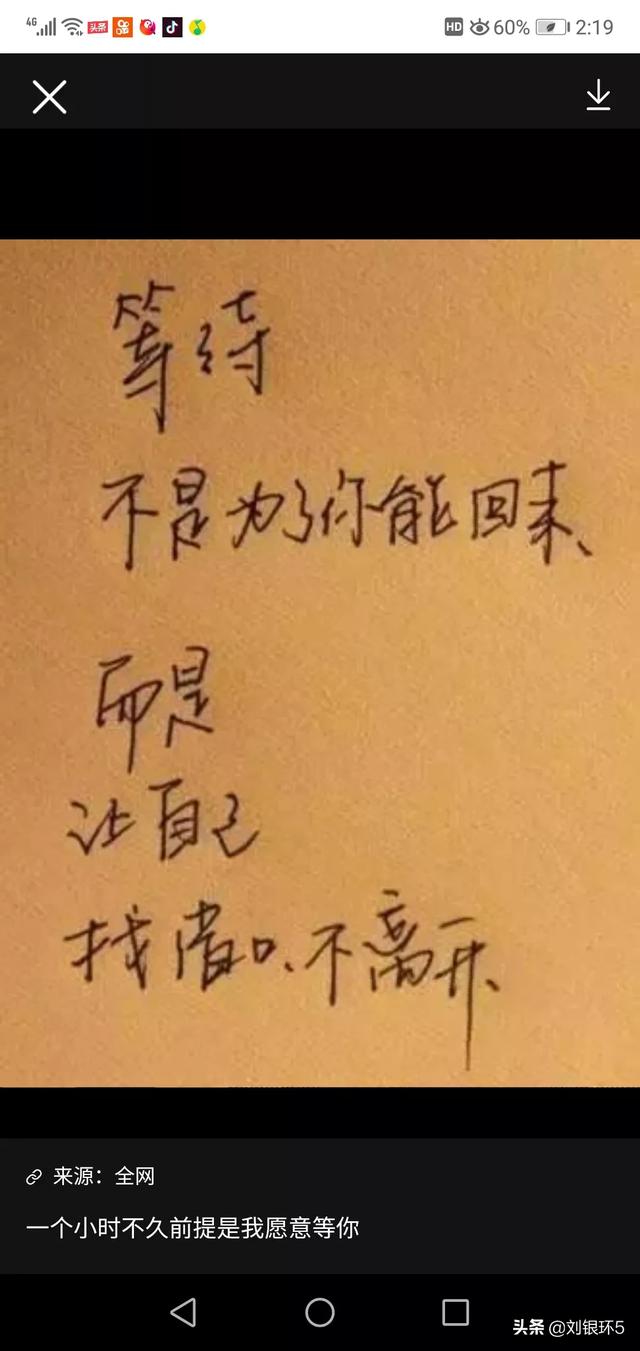 4G HD 60% 2:19
头条
等待
不是为了你能回来、
而是
让自己
找借口、不离开、
来源：全网
一个小时不久前提是我愿意等你
头条 @刘银环5